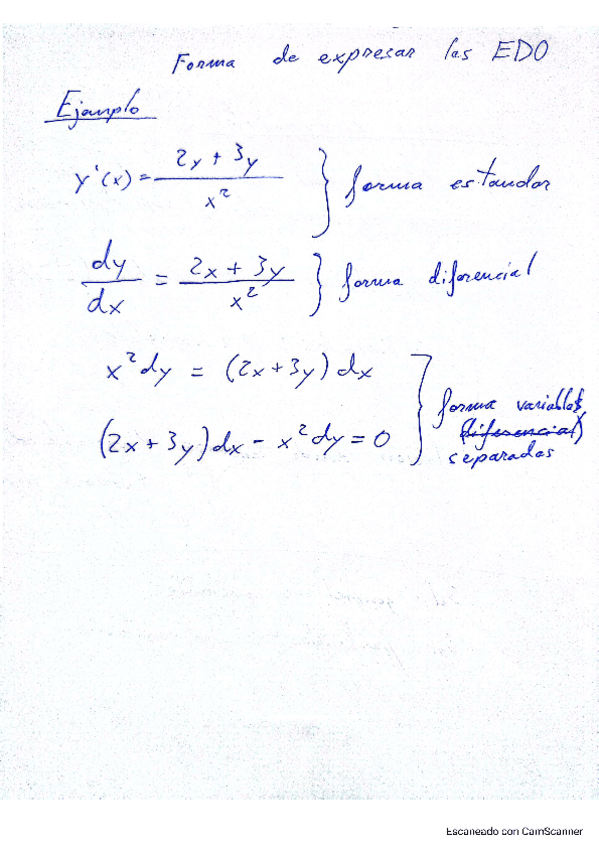 Forma de expresar las EDO
Ejemplo
y'(x) = (2y + 3y)/x² } forma estandar
dy/dx = (2x + 3y)/x² } forma diferencial
x² dy = (2x + 3y) dx
(2x + 3y) dx - x² dy = 0
forma variables
(diferencial)
separadas
Escaneado con CamScanner